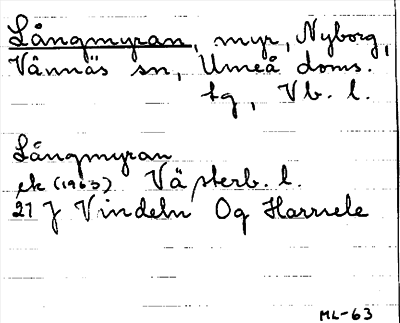 Långmyran, myr, Nyborg,
Vännäs sn, Umeå doms.
tg, Vb. l.
Långmyran
ek (1963) Västerb. l.
21 J Vindeln Og Harrsele
ML-63